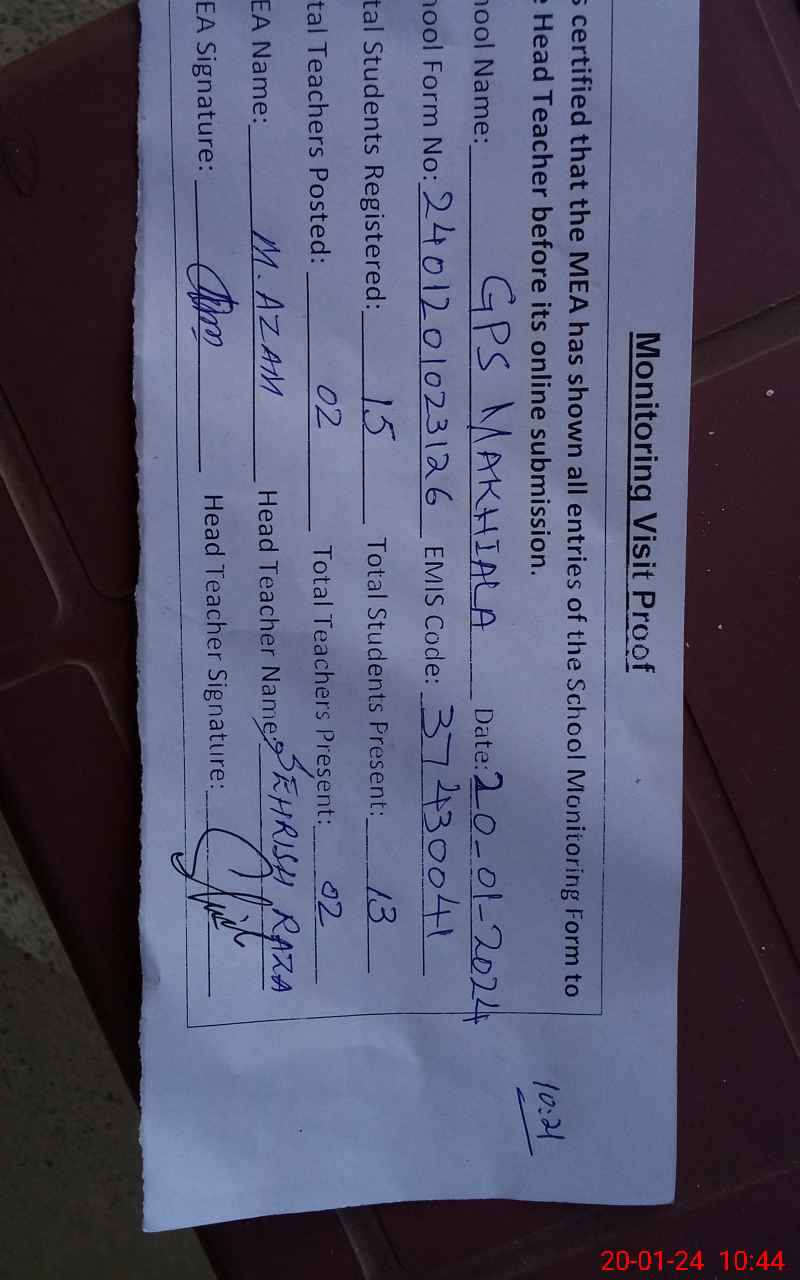 Monitoring Visit Proof
s certified that the MEA has shown all entries of the School Monitoring Form to
e Head Teacher before its online submission.
hool Name: GPS MAKHIALA Date: 20-01-2024
hool Form No: 2401201023126 EMIS Code: 37430041
tal Students Registered: 15 Total Students Present: 13
tal Teachers Posted: 02 Total Teachers Present: 02
EA Name: M. AZAM Head Teacher Name: SEHRISH RAZA
EA Signature: Head Teacher Signature:
10:21
20-01-24 10:44